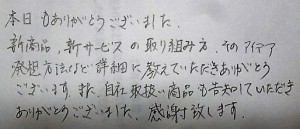 本日もありがとうございました。
新商品、新サービスの取り組み方、そのアイデア
発想方法など詳細に教えていただきありがとう
ございます。また、自社取扱い商品も告知していただき
ありがとうございました。感謝致します。